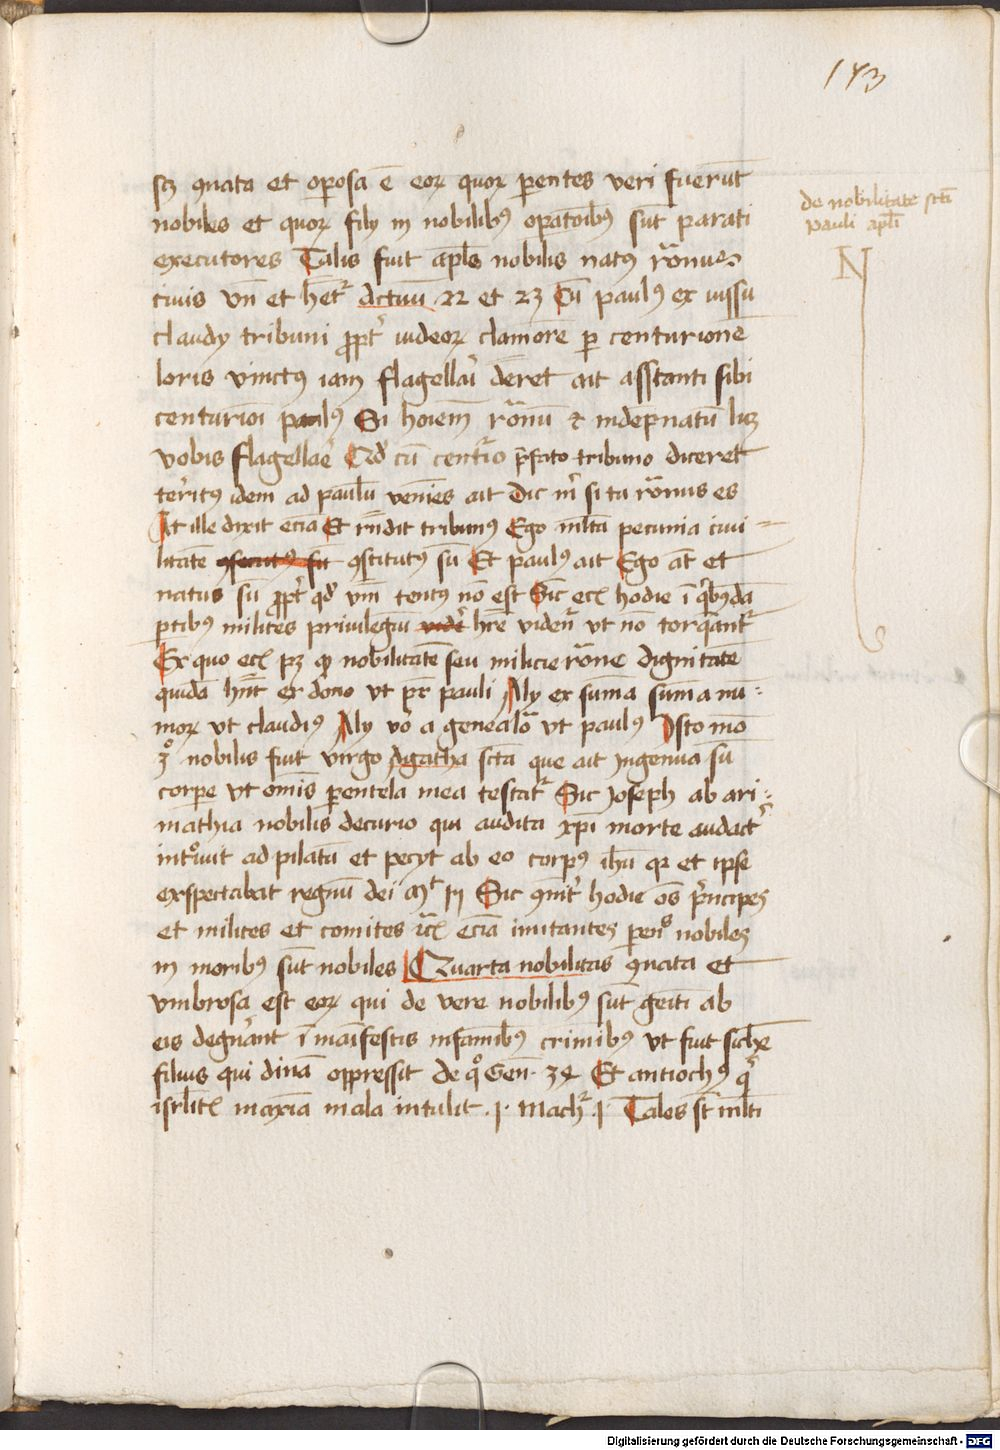 173
scz gnata et operosa ē eoꝝ quoꝝ parentes veri fuerūt
nobiles et quoꝝ filij in nobilibꝰ operatōibꝰ sūt parati
executores Talis fuit apls nobilis natꝰ rōmanꝰ
ciuis vn̄ et hēt Actuū 22 et 23 Cū paulꝰ ex iussu
claudij tribuni ꝓpt̄ iudeoꝝ clamorē per centurionē
loris vinctꝰ iam flagellari dēret ait asstanti sibi
centurioī paulꝰ Si hoiem rōnū ⁊ indēpnatū licz
vobis flagellare Qd̓ cū centurio p̄fato tribuno diceret
territꝰ idem ad paulū veniēs ait Dic m̄ si tu rōnus es
At ille dixit eciā Et rn̄dit tribunꝰ Ego mlta pecunia ciui=
litatē ꝯsecutꝰ fui ꝯstitutꝰ sū Et paulꝰ ait Ego āt et
natus sū ꝓpt̄ qd̓ vin̄ tentꝰ nō est Sic ecī hodie ī qͥbꝰdā
ꝑtibꝰ milites priuilegiū vidēt hr̄e vident̄ vt nō torqueant̄
Ex quo ecī pz qͩ nobilitatē seu milicie rōne dignitatē
quidā hn̄t ex dono vt pr̄ pauli Alij ex sum̄a sum̄a nū:
moꝝ vt claudiꝰ Alij vo a genealoīa vt paulꝰ Isto mō
3º nobilis fuit virgo Agatha sctā que ait Ingenua sū
corpe vt om̄is parentela mea testat̄ Sic Joseph ab ari:
mathia nobilis decurio qui audita xp̄i morte audact̄
introiuit ad pilatū et pecijt ab eo corpꝰ ihū qꝛ et ipse
exspectabat regnū dei Mͭ 15 Sic ꝯmit̄ hodie oēs pͥncipes
et milites et comites ⁊c̄ eciā imitantes parentes nobiles
in moribꝰ sūt nobiles Quarta nobilitas gnata et
vmbrosa est eoꝝ qui de vere nobilibꝰ sūt geniti ab
eis degnͣant ī maīfestis infamibꝰ criminibꝰ vt fuit sichē
filius qui dinā oppressit de qͦ Gen̄ 34 Et antiochꝰ qͥ
isrlit̄ maxīa mala intulit .1. Mach̄ .1. Tales st̄ mlti
de nobilitate scti
pauli apli
N
Digitalisierung gefördert durch die Deutsche Forschungsgemeinschaft - DFG